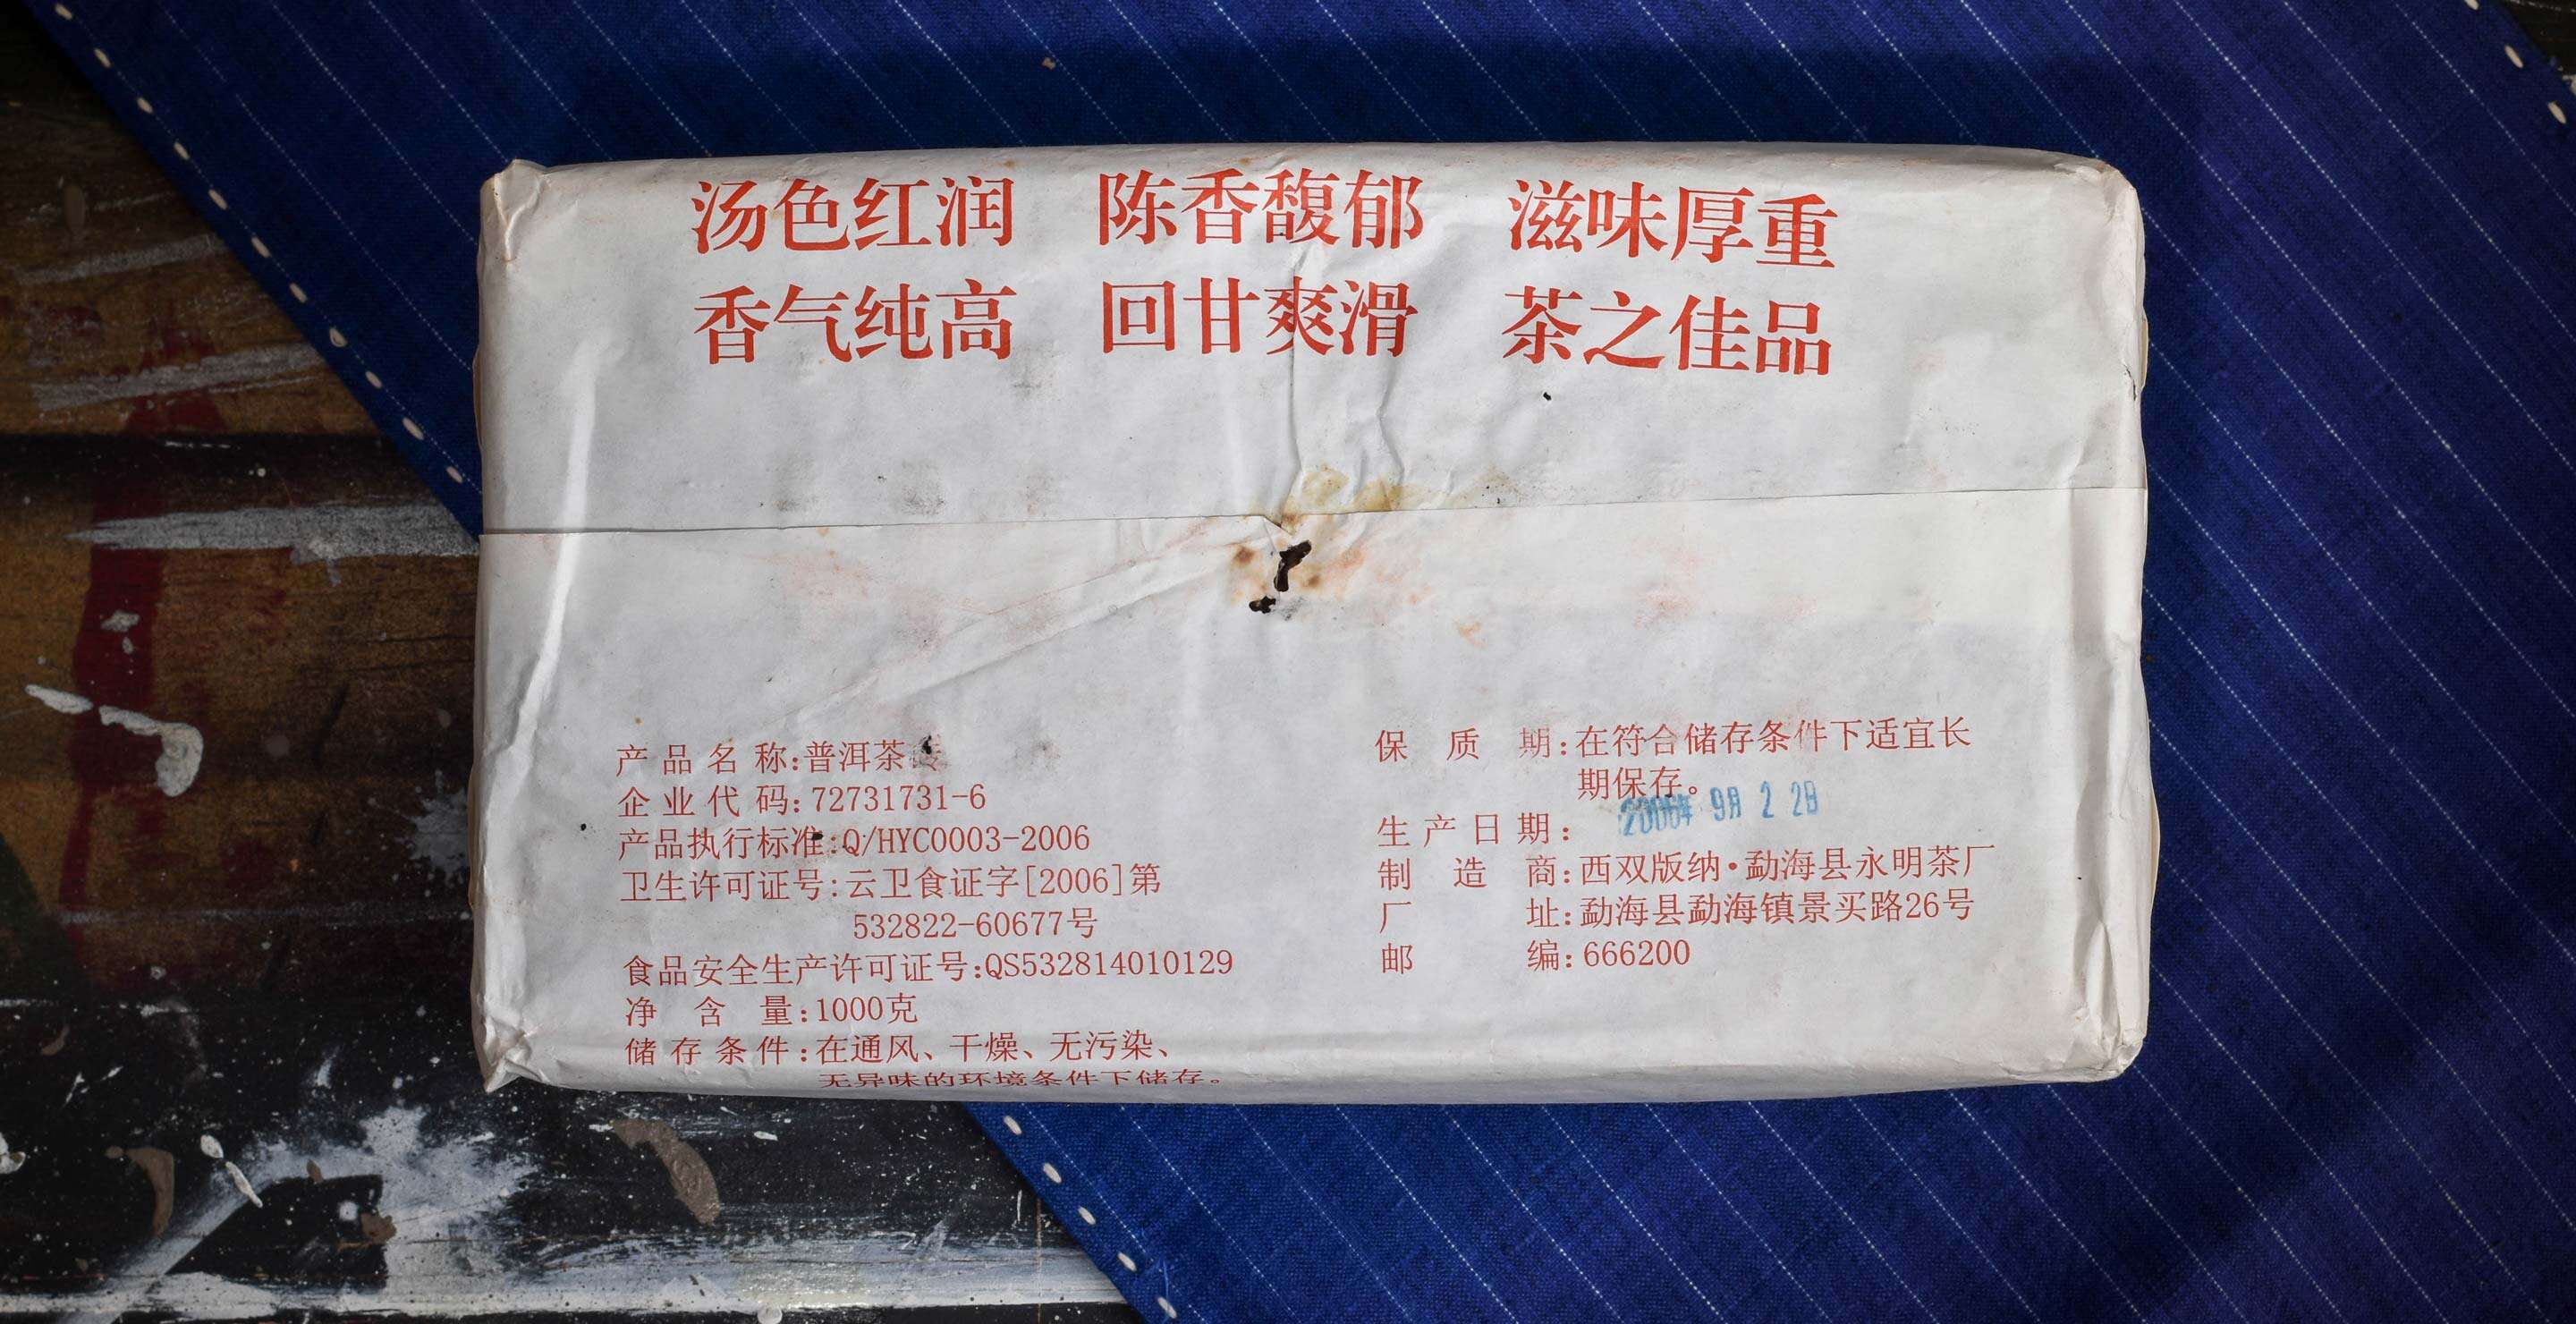 汤色红润 陈香馥郁 滋味厚重
香气纯高 回甘爽滑 茶之佳品
产品名称:普洱茶砖
企业代码:72731731-6
产品执行标准:Q/HYC0003-2006
卫生许可证号:云卫食证字[2006]第
532822-60677号
食品安全生产许可证号:QS532814010129
净含量:1000克
储存条件:在通风、干燥、无污染、
无异味的环境条件下储存。
保质期:在符合储存条件下适宜长
期保存。
生产日期: 2006年 9月 2 2日
制造商:西双版纳•勐海县永明茶厂
厂址:勐海县勐海镇景买路26号
邮编:666200